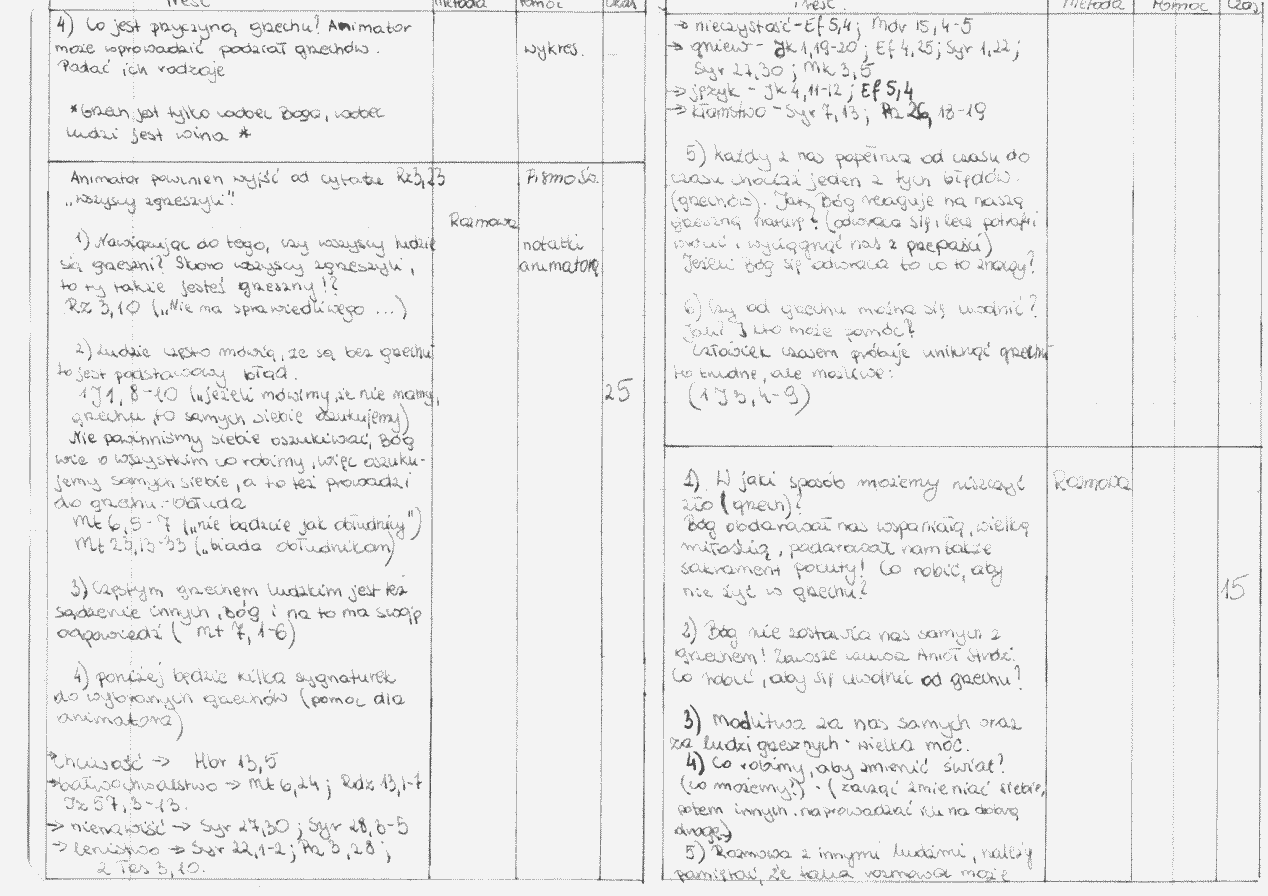 Treść
metoda
Pomoc
Czas
4) Co jest przyczyną grzechu? Animator
może wprowadzić podział grzechów.
Podać ich rodzaje
wykres.
*Grzech jest tylko wobec Boga, wobec
ludzi jest wina *
Animator powinien wyjść od cytatu Rz 3,23
„wszyscy zgrzeszyli".
Pismo Św.
Rozmowa
1) Nawiązując do tego, czy wszyscy ludzie
są grzeszni? Skoro wszyscy zgrzeszyli,
to ty także jesteś grzeszny!?
Rz 3,10 („Nie ma sprawiedliwego ...")
notatki
animatora
2) Ludzie często mówią, że są bez grzechu
to jest podstawowy błąd.
1 J 1, 8-10 („jeżeli mówimy, że nie mamy
grzechu, to samych siebie oszukujemy)
Nie powinniśmy siebie oszukiwać, Bóg
wie o wszystkim co robimy, więc oszuku-
jemy samych siebie, a to też prowadzi
do grzechu - obłuda
Mt 6,5-7 („nie bądźcie jak obłudnicy")
Mt 23,13-33 („biada obłudnikom)
25
3) Częstym grzechem ludzkim jest też
sądzenie innych, Bóg i na to ma swoją
odpowiedź ( Mt 7, 1-6)
4) poniżej będzie kilka sygnaturek
do wybranych grzechów (pomoc dla
animatora)
→ chciwość → Hbr 13,5
→ bałwochwalstwo → Mt 6,24 ; Rdz 13,1-7
Iz 57, 3-13.
→ nienawiść → Syr 27,30 ; Syr 28, 3-5
→ lenistwo → Syr 22,1-2 ; Prz 3,28 ;
2 Tes 3, 10.
Treść
Metoda
Pomoc
Czas
→ nieczystość - Ef 5,4 ; Mdr 15, 4-5
→ gniew - Jk 1,19-20 ; Ef 4,25 ; Syr 1,22 ;
Syr 27,30 ; Mk 3,5
→ język - Jk 4,11-12 ; Ef 5,4
→ kłamstwo - Syr 7,13 ; Prz 26, 18-19
5) Każdy z nas popełnia od czasu do
czasu chociaż jeden z tych błędów
(grzechów). Jak Bóg reaguje na naszą
grzeszną naturę? (odwraca się, lecz potrafi
wrócić i wyciągnąć nas z przepaści)
Jeżeli Bóg się odwraca to co to znaczy?
6) Czy od grzechu można się uwolnić?
Jak? I kto może pomóc?
Człowiek czasem próbuje uniknąć grzechu
to trudne, ale możliwe:
(1 J 3, 4-9)
1) W jaki sposób możemy niszczyć
zło (grzech)?
Bóg obdarował nas wspaniałą, wielką
miłością, podarował nam także
sakrament pokuty! Co robić, aby
nie żyć w grzechu?
Rozmowa
15
2) Bóg nie zostawia nas samych z
grzechem! Zawsze czuwa Anioł Stróż.
Co robić, aby się uwolnić od grzechu?
3) Modlitwa za nas samych oraz
za ludzi grzesznych - wielka moc.
4) Co robimy, aby zmienić świat?
(co możemy?) - (zacząć zmieniać siebie,
potem innych naprowadzać ich na dobrą
drogę)
5) Rozmowa z innymi ludźmi, należy
pamiętać, że taka rozmowa może